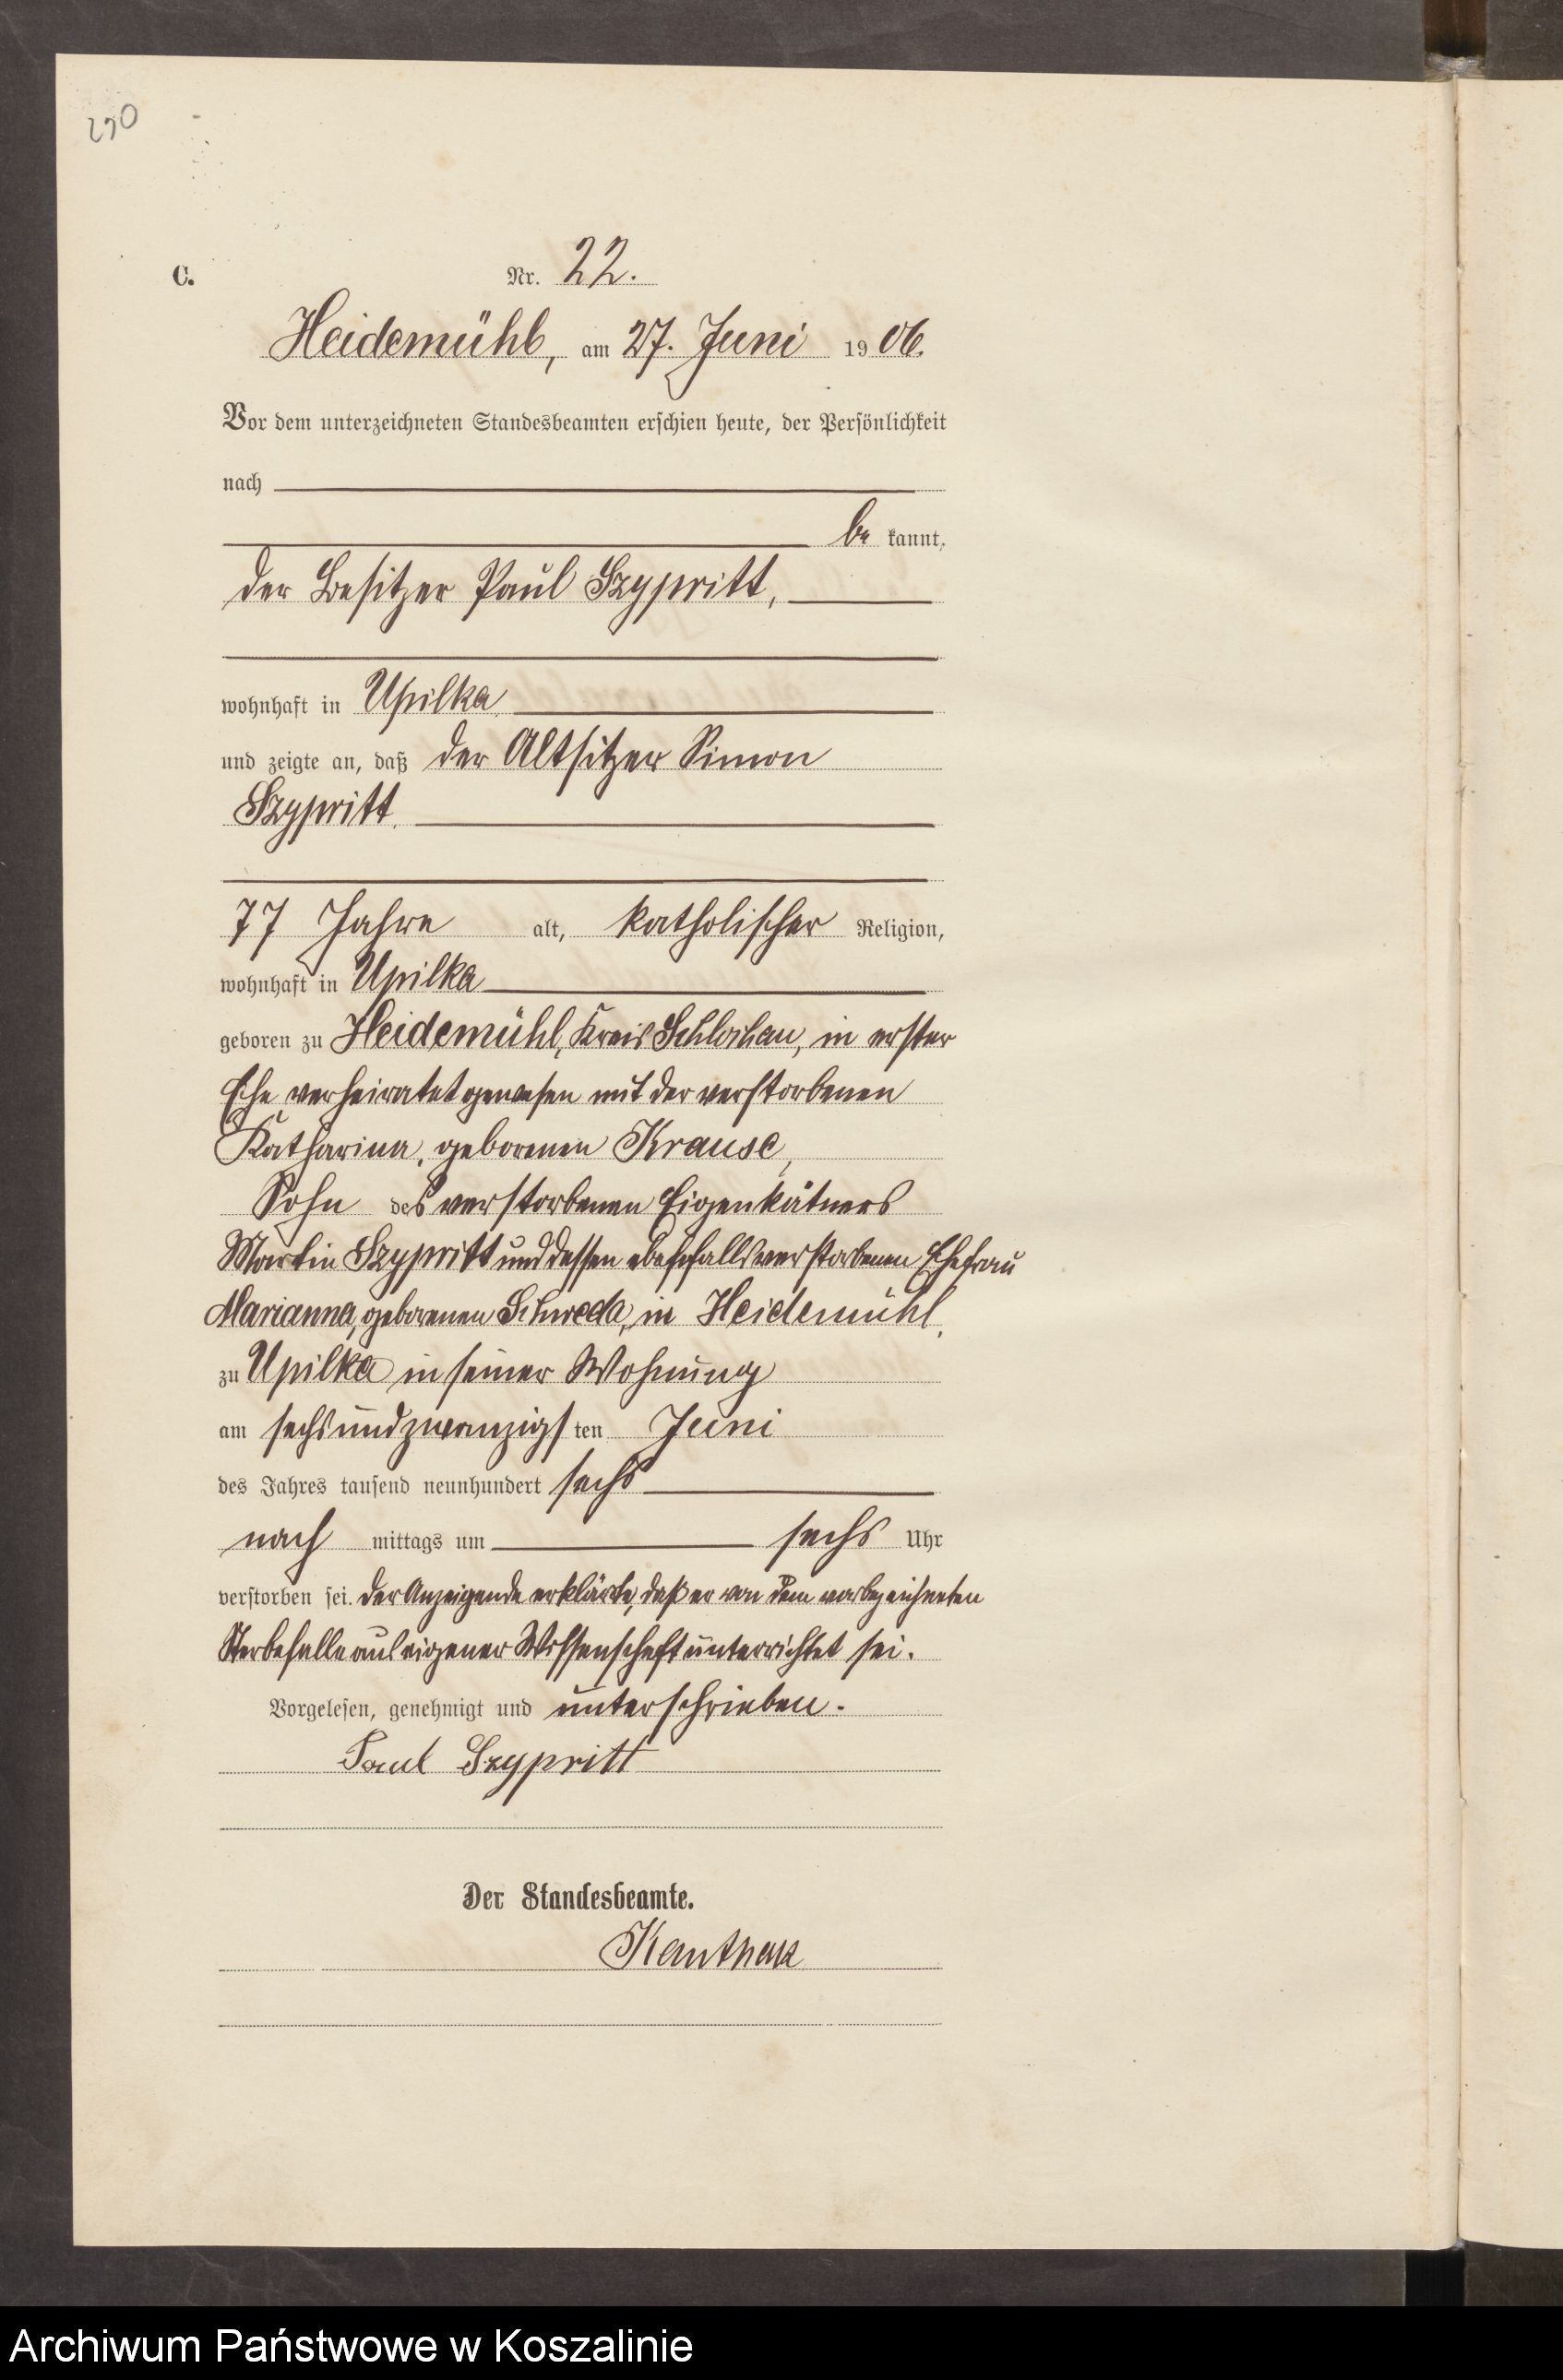 250
C.
Nr. 22.
Heidemühl, am 27. Juni 1906.
Vor dem unterzeichneten Standesbeamten erschien heute, der Persönlichkeit
nach
be kannt,
der Besitzer Paul Szypritt,
wohnhaft in Upilka
und zeigte an, daß der Altsitzer Simon
Szypritt,
77 Jahre alt, katholischer Religion,
wohnhaft in Upilka
geboren zu Heidemühl, Kreis Schlochau, in erster
Ehe verheiratet gewesen mit der verstorbenen
Katharina, geborenen Krause,
Sohn des verstorbenen Eigenkätners
Martin Szypritt und dessen ebenfalls verstorbenen Ehefrau
Marianna, geborenen Schweda, in Heidemühl,
zu Upilka in seiner Wohnung
am sechsundzwanzigsten Juni
des Jahres tausend neunhundert sechs
nach mittags um sechs Uhr
verstorben sei. Der Anzeigende erklärte, daß er von dem vorbezeichneten
Sterbefalle aus eigener Wissenschaft unterrichtet sei.
Vorgelesen, genehmigt und unterschrieben.
Paul Szypritt
Der Standesbeamte.
Kanthak
Archiwum Państwowe w Koszalinie